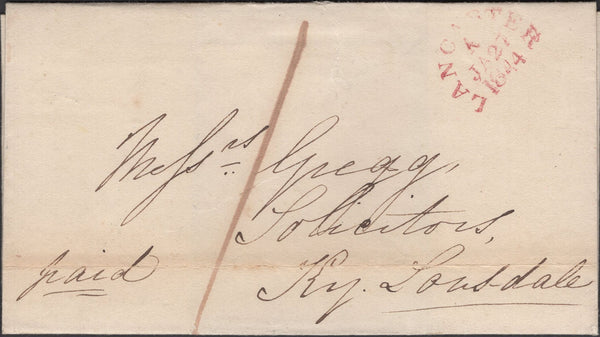 LANCASTER
K
JA27
1844
Messrs. Gregg,
Solicitors,
paid
Ky. Lonsdale
1